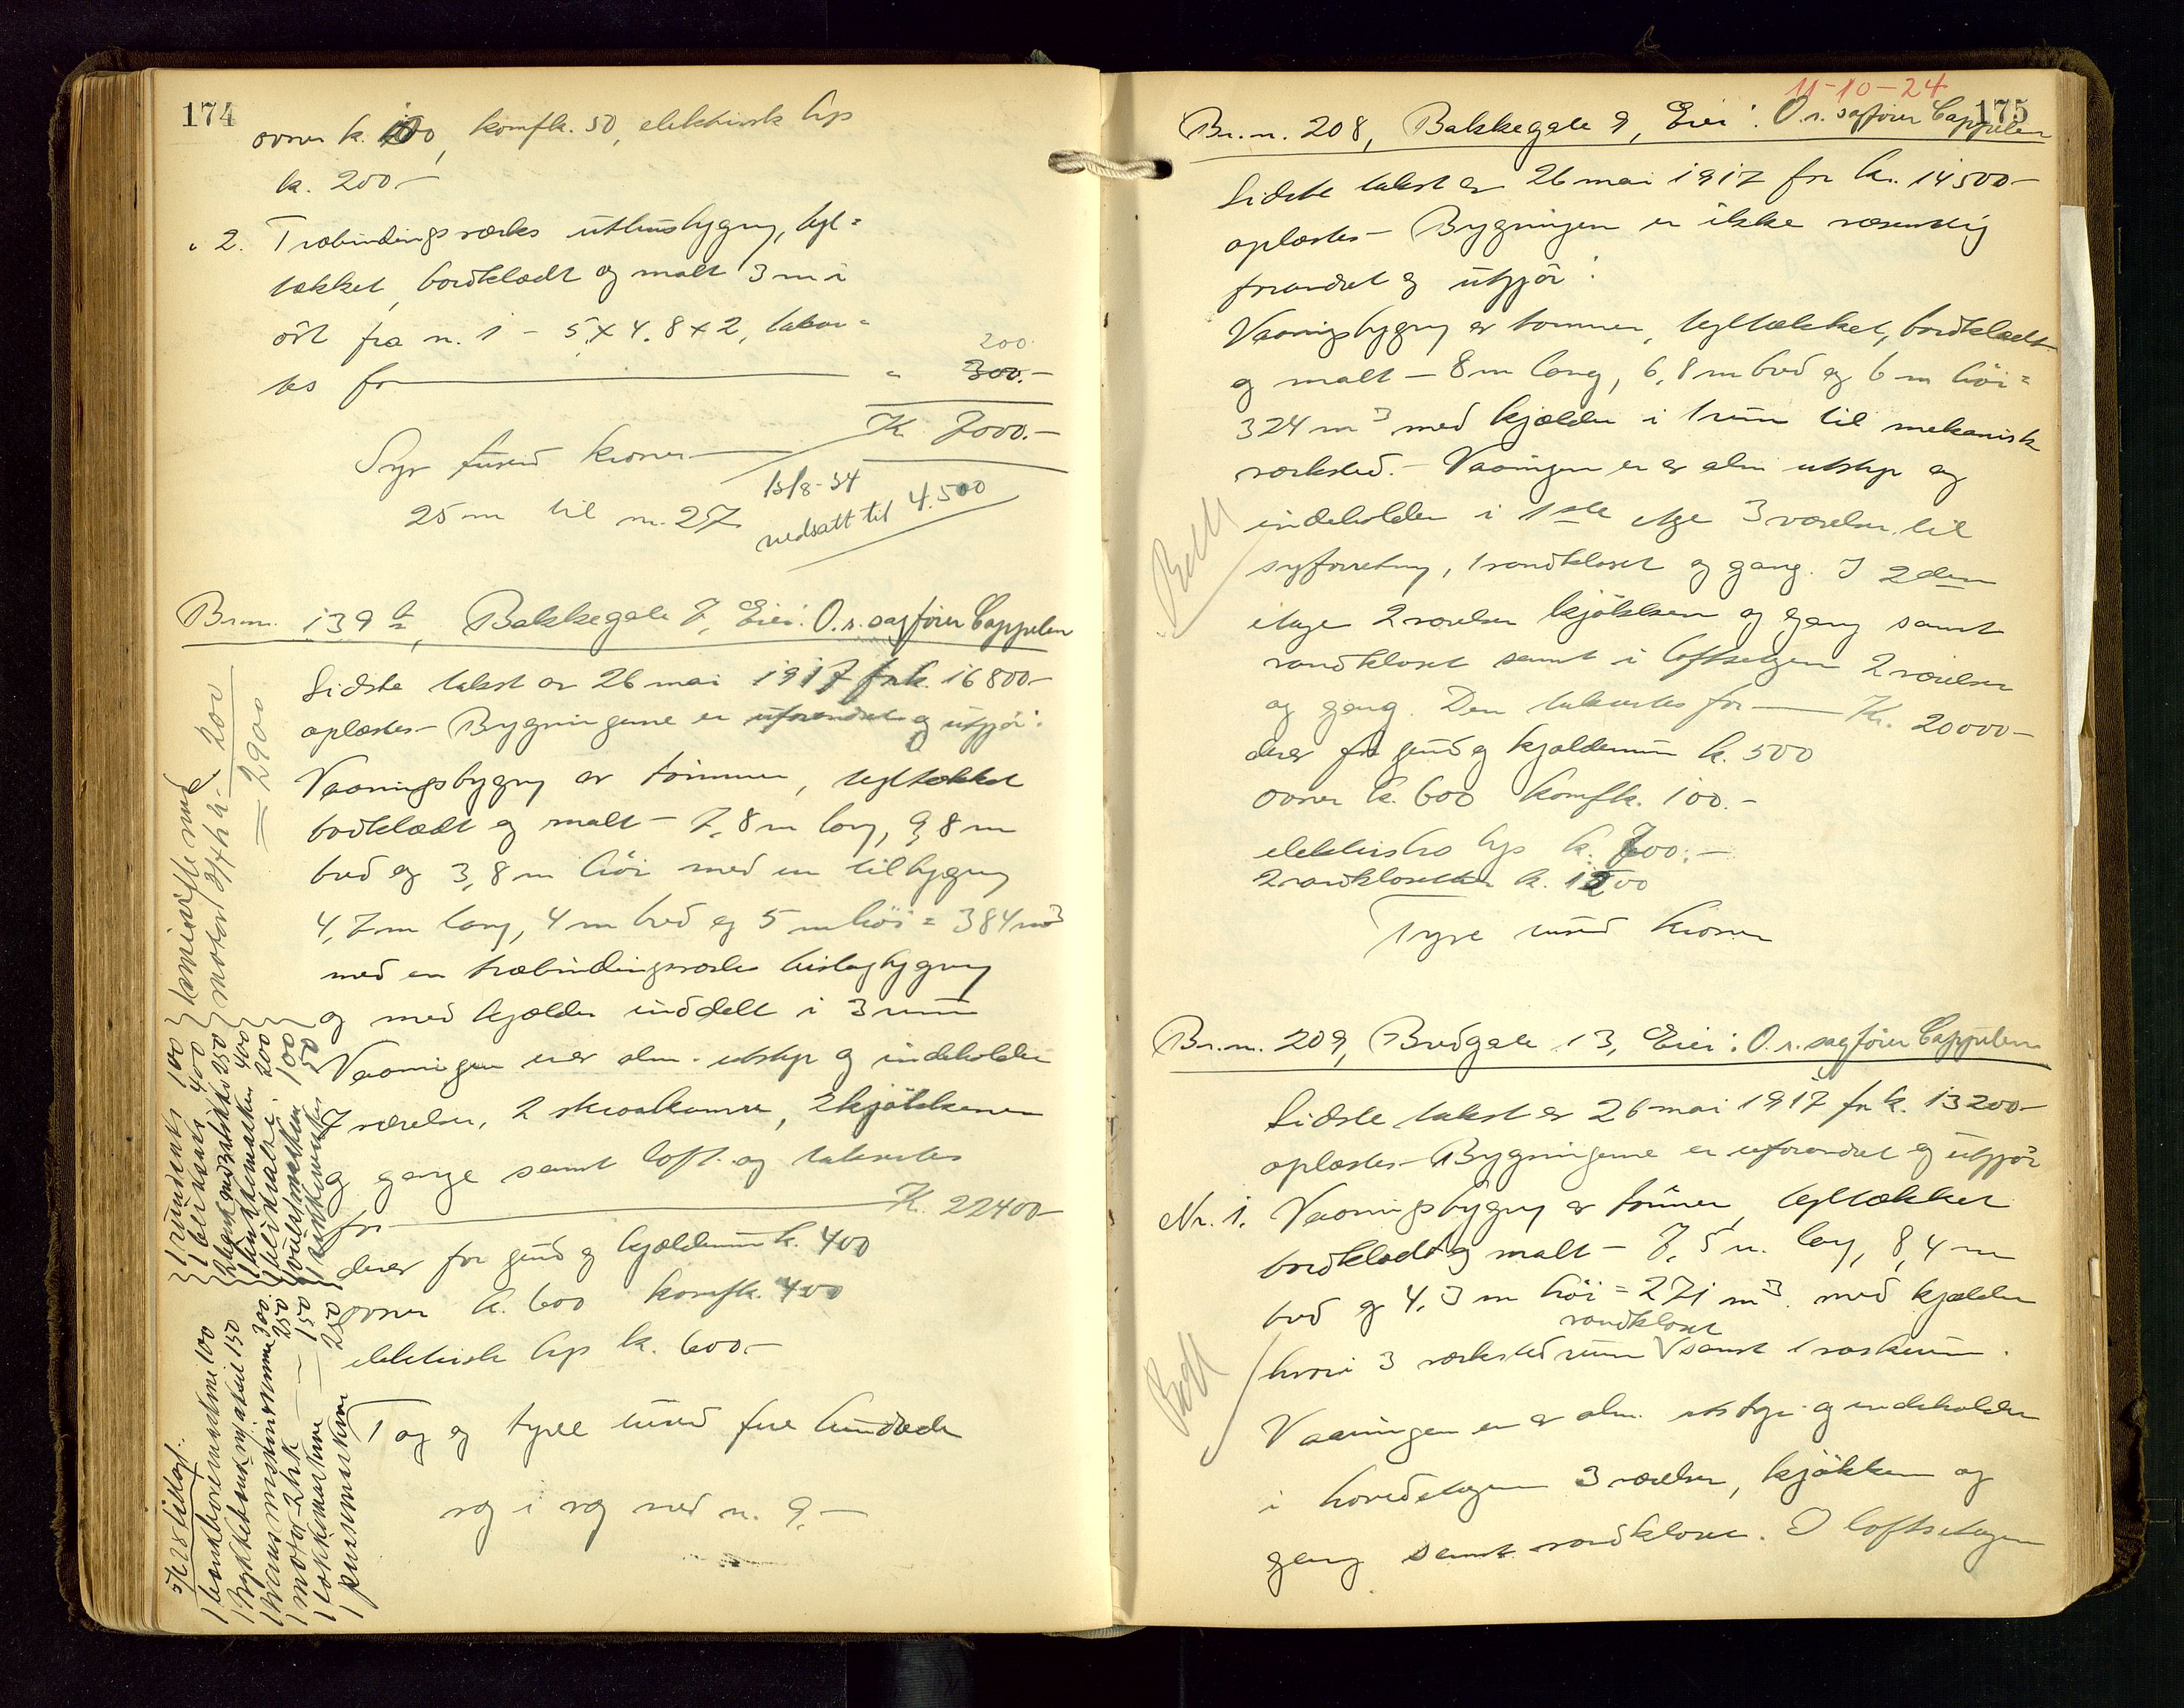 174
ovner k. 100, komfk. 50, elektrisk lys
k. 200-
" 2. Træbindingsværks uthusbygng, tegl=
tækket, bordklædt og malt 3 m i
öst fra n. 1 - 5 x 4.8 x 2, takser=
200.
tes for " 300.-
K. 7000.-
Syv tusind kroner
25 m til nr. 27
13/8-34
nedsatt til 4.500
Br.nr. 139 b, Bakkegate 7, Eier: O.r. sagfører Cappelen
Sidste takst av 26 mai 1917 for k. 16800-
oplæstes- Bygningerne er uforandret og utgjör:
Vaaningsbygng av tömmer, tegltækket
bordklædt og malt - 7,8 m lang, 9,8 m
bred og 3,8 m höi med en tilbygng
4,7 m lang, 4 m bred og 5 m höi = 384 m3
med en træbindingsværks bislagbygng
og med kjælder inddelt i 3 rum
Vaaningen er av alm. utstyr og indeholder
7 værelser, 2 skraakamre, 2 kjökkener
og gange samt loft og taksertes
for K. 22400-
derav for grund og kjælderrum k. 400
ovner k. 600 komfk. 400
elektrisk lys k. 600.-
To og tyve tusind fire hundrede
væg i væg med n. 9.-
5/6 25 tillagt.
1 bænkboremaskine 100
1 stykkebænk 150
300.
1 motor - 2 hk 250
1 lokkemaskine 150
250
1 rundsaks 100
400
250
400
200
100
50
motor 2/4 h.k. 200
= 2900
11-10-24
175
Br.n. 208, Bakkegate 9, Eier: O.r. sagfører Cappelen
Sidste takst av 26 mai 1917 for k. 14500-
oplæstes- Bygningen er ikke væsentlig
forandret og utgjör:
Vaaningsbygng av tömmer, tegltækket, bordklædt
og malt - 8 m lang, 6,8 m bred og 6 m höi =
324 m3 med kjælder i 1 rum til mekanisk
verksted.- Vaaningen er av alm utstyr og
indeholder i 1ste etage 3 værelser til
syforretng, 1 vandkloset og gang. I 2den
etage 2 værelser kjökken og gang samt
vandkloset samt i loftsetagen 2 værelser
og gang. Den taksertes for Kr. 20000-
derav for grund og kjælderrum k. 500
ovner k. 600 komfk. 100.-
elektrisk lys k. 700.-
2 vandklosetter k. 1200
Tyve tusind kroner
Br.n. 209, Bredgate 13, Eier: O.r. sagfører Cappelen
Sidste takst av 26 mai 1917 for k. 13200-
oplæstes- Bygningerne er uforandret og utgjör
Nr. 1. Vaaningsbygng av tömmer, tegltækket
bordklædt og malt - 7,5 m. lang, 8,4 m
bred og 4,3 m höi = 271 m3. med kjælder
vandkloset
hvori 3 verkstedrum V samt 1 vaskerum.
Vaaningen er av alm. utstyr og indeholder
i hovedetagen 3 værelser, kjökken og
gang samt vandkloset. I loftsetagen